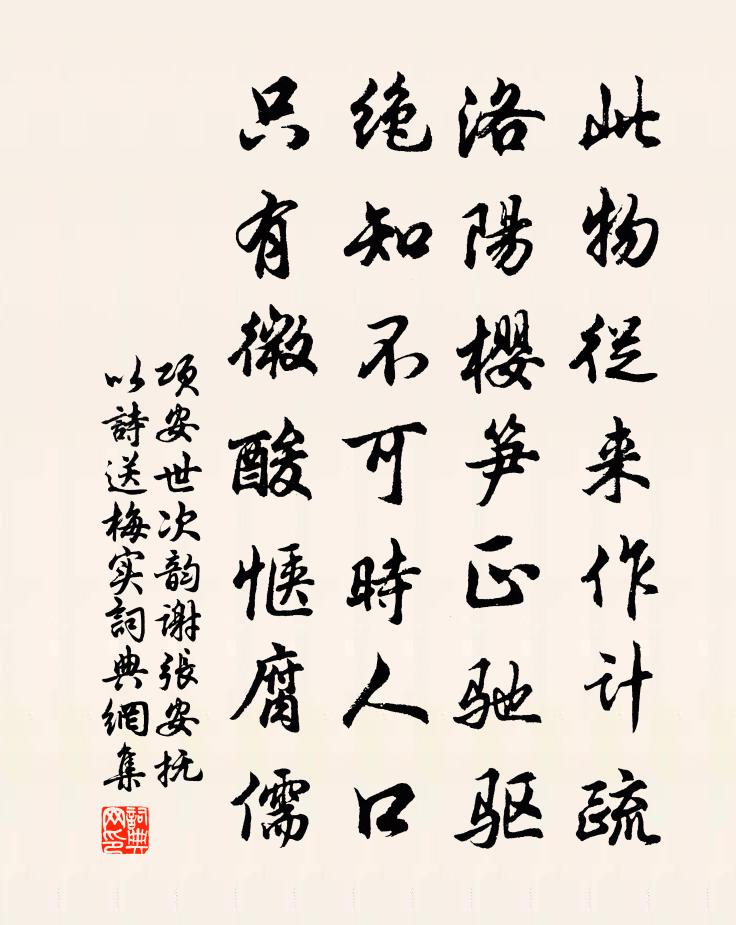 此物從来作计疏
洛陽櫻笋正驰驱
绝知不可時人口
只有微酸惬腐儒
项安世次韵谢張安抚
以詩送梅实詞典網集
詞典網印